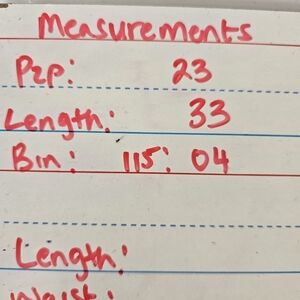 Measurements
P2p: 23
Length: 33
Bin: 115: 04
Length:
Waist: